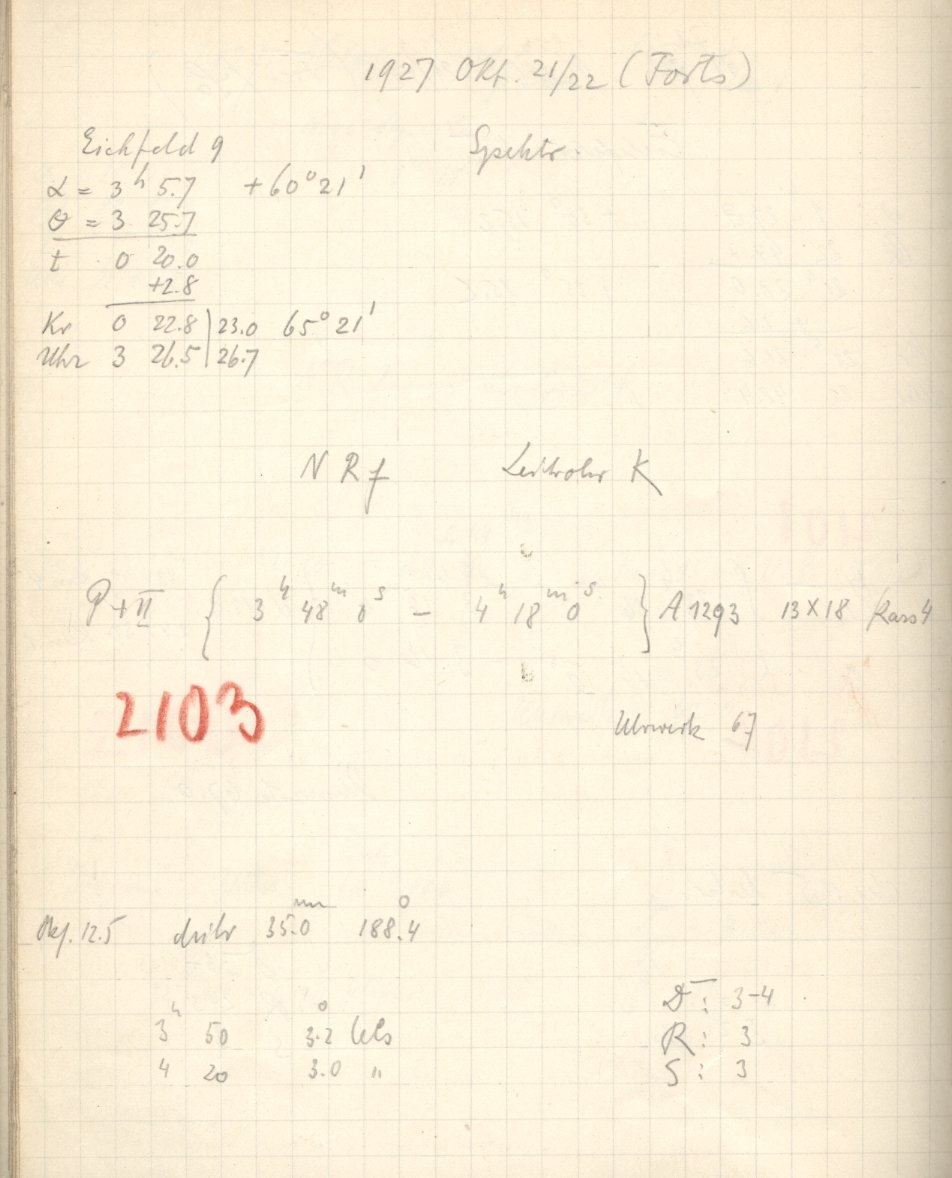 1927 Okt. 21/22 (Forts)
Eichfeld 9 Spektr.
α = 3ʰ 5.7 +60° 21'
θ = 3 25.7
t 0 20.0
+2.8
Kr 0 22.8 | 23.0 65° 21'
Uhr 3 26.5 | 26.7
N R f Leitrohr K
P + II { 3ʰ 48ᵐ 0ˢ – 4ʰ 18ᵐ 0ˢ } A 1293 13 X 18 Kass 4
2103
Uhrwerk 67
12.5 35.0ᵐᵐ 188.4°
3ʰ 50 3.2° Cels
4 20 3.0 "
D: 3-4
R: 3
S: 3